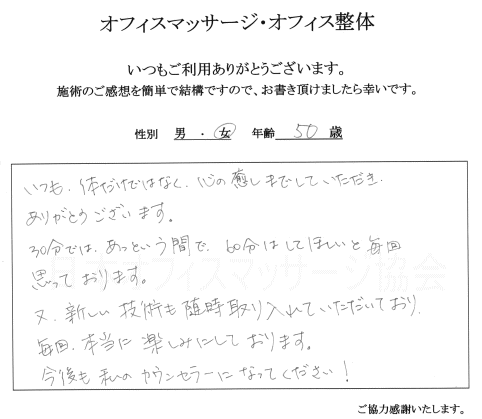 オフィスマッサージ・オフィス整体
いつもご利用ありがとうございます。
施術のご感想を簡単で結構ですので、お書き頂けましたら幸いです。
性別 男 ・ 女 年齢 50 歳
いつも、体だけではなく、心の癒しまでしていただき、
ありがとうございます。
30分では、あっという間で、60分はしてほしいと毎回
思っております。
日本オフィスマッサージ協会
又、新しい技術も随時取り入れていただいており、
毎回、本当に楽しみにしております。
今後も私のカウンセラーになってください！
ご協力感謝いたします。